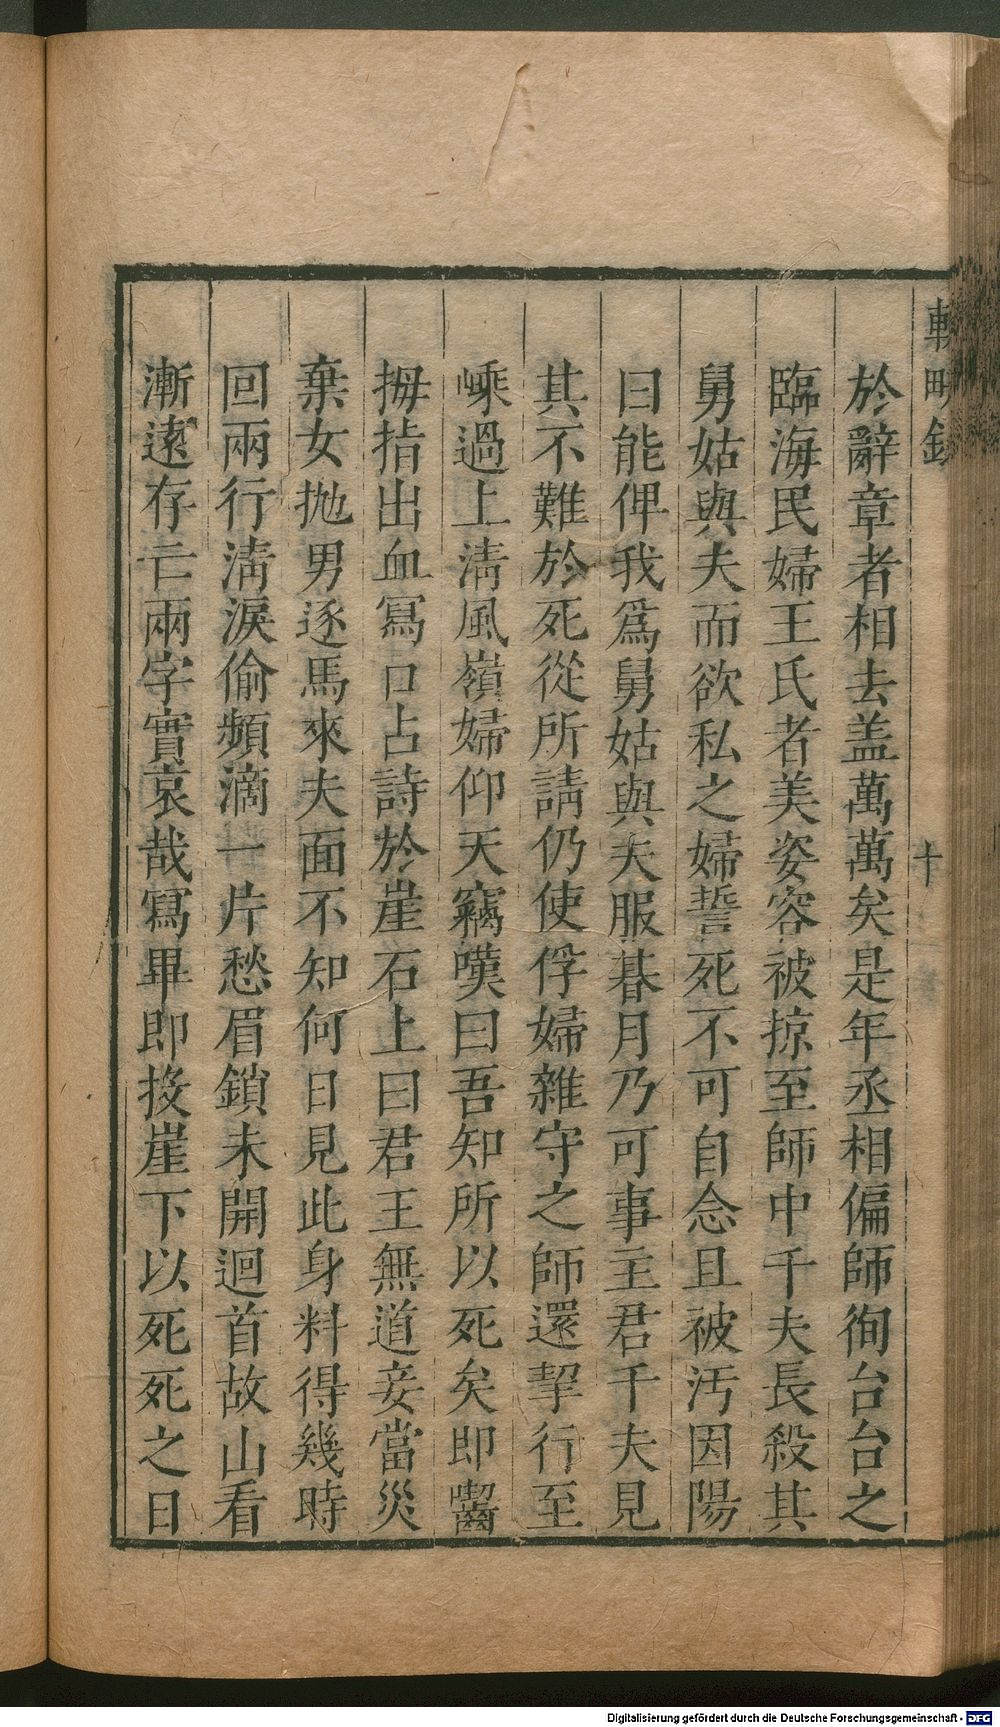 輟畊錄
十
於辭章者相去盖萬萬矣是年丞相偏師徇台台之
臨海民婦王氏者美姿容被掠至師中千夫長殺其
舅姑與夫而欲私之婦誓死不可自念且被汚因陽
曰能俾我爲舅姑與夫服朞月乃可事主君千夫見
其不難於死從所請仍使俘婦雜守之師還挈行至
嵊過上淸風嶺婦仰天竊嘆曰吾知所以死矣即齧
拇指出血寫口占詩於崖石上曰君王無道妾當災
棄女抛男逐馬來夫面不知何日見此身料得幾時
回兩行淸淚偷頻滴一片愁眉鎖未開迴首故山看
漸遠存亡兩字實哀哉寫畢即投崖下以死死之日
Digitalisierung gefördert durch die Deutsche Forschungsgemeinschaft - DFG